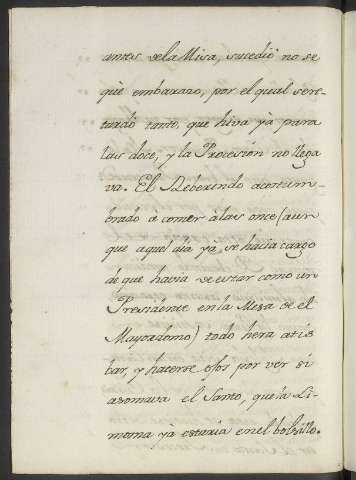 antes de la Misa, sucedió no se
què embarazo, por el qual sere-
tardò tanto, que hiva yà para
las doce, y la Procesión no llega
va. El Reberendo acostum-
brado a comer àlas once (aun
que aquel dìa yà se hacìa cargo
de que havìa de estar como un
Presidente en la Mesa de el
Mayordomo) todo hera atis
bar, y hacerse ojos por ver si
asomava el Santo, que la Li-
mosna yà estarìa en el bolsillo.